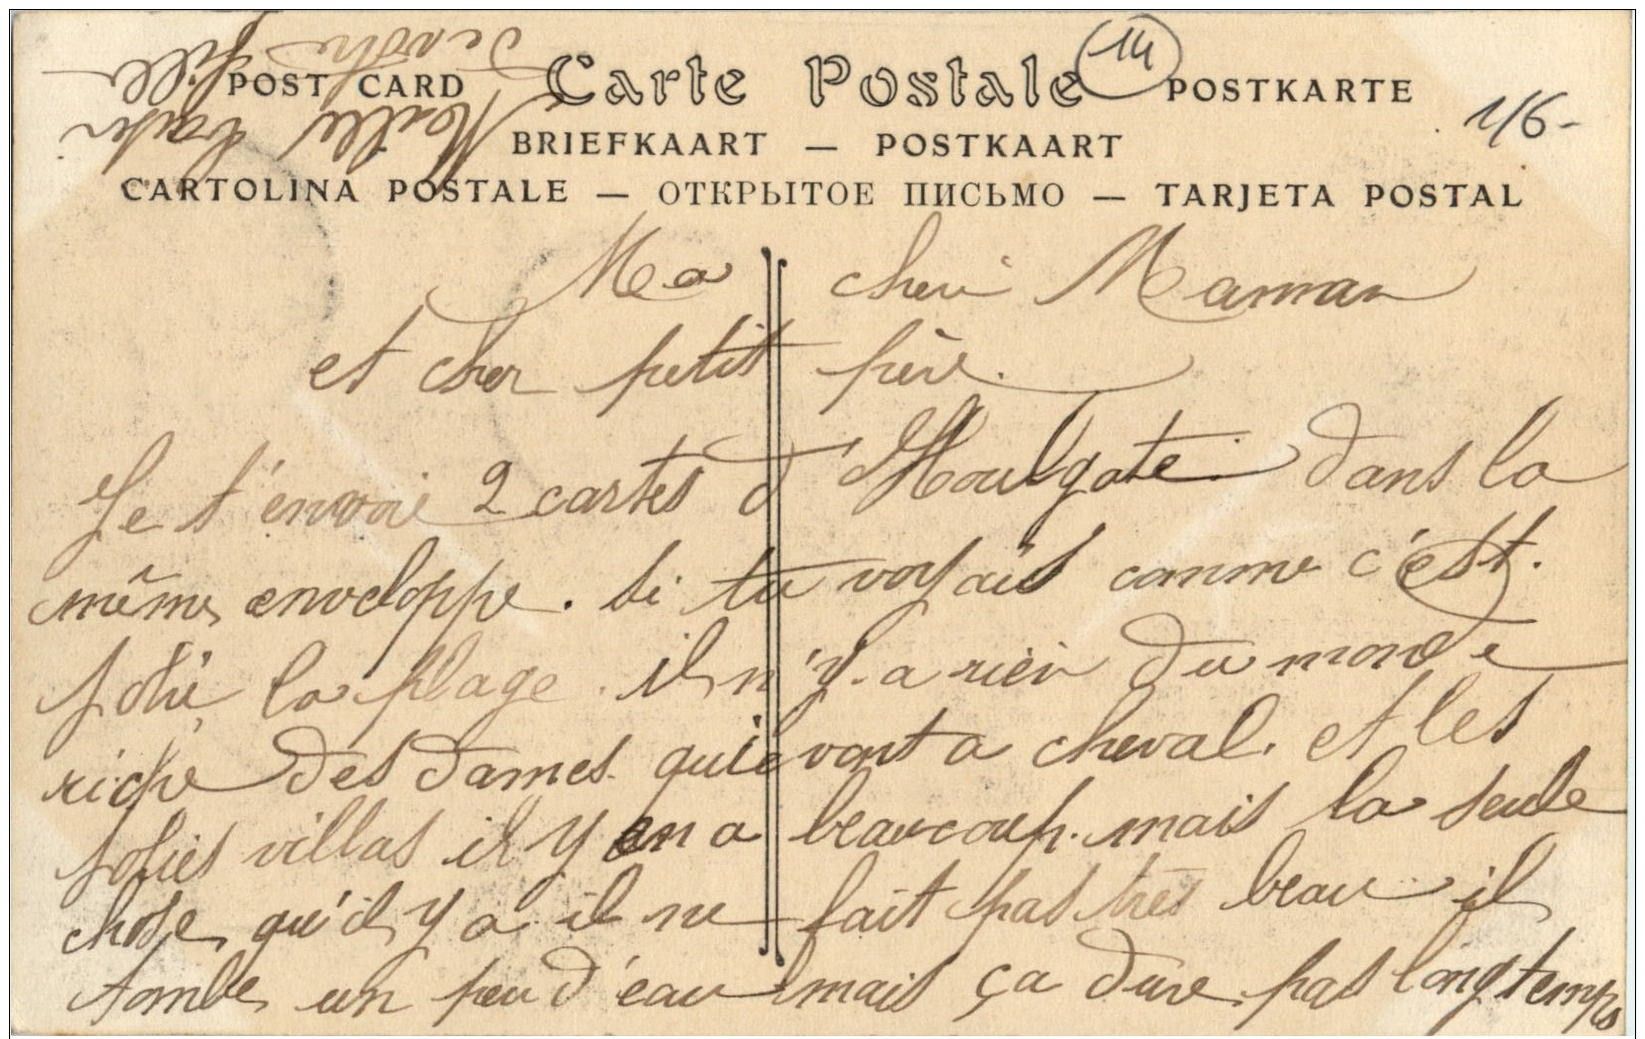 POST CARD Carte Postale POSTKARTE
14
1/6-
BRIEFKAART — POSTKAART
CARTOLINA POSTALE — ОТКРЫТОЕ ПИСЬМО — TARJETA POSTAL
Ma cheri Maman
et cher petit père.
Je t'envoie 2 cartes d'Houlgate dans la
même enveloppe. si tu voyais comme c'est.
joli la plage. il n'y a rien du monde
riche des dames qui vont a cheval. et les
jolies villas il y en a beaucoup. mais la seule
chose qu'il y a il ne fait pas très beau il
tombe un peu d'eau mais ça dure pas longtemps
Mille baiser
de votre fille